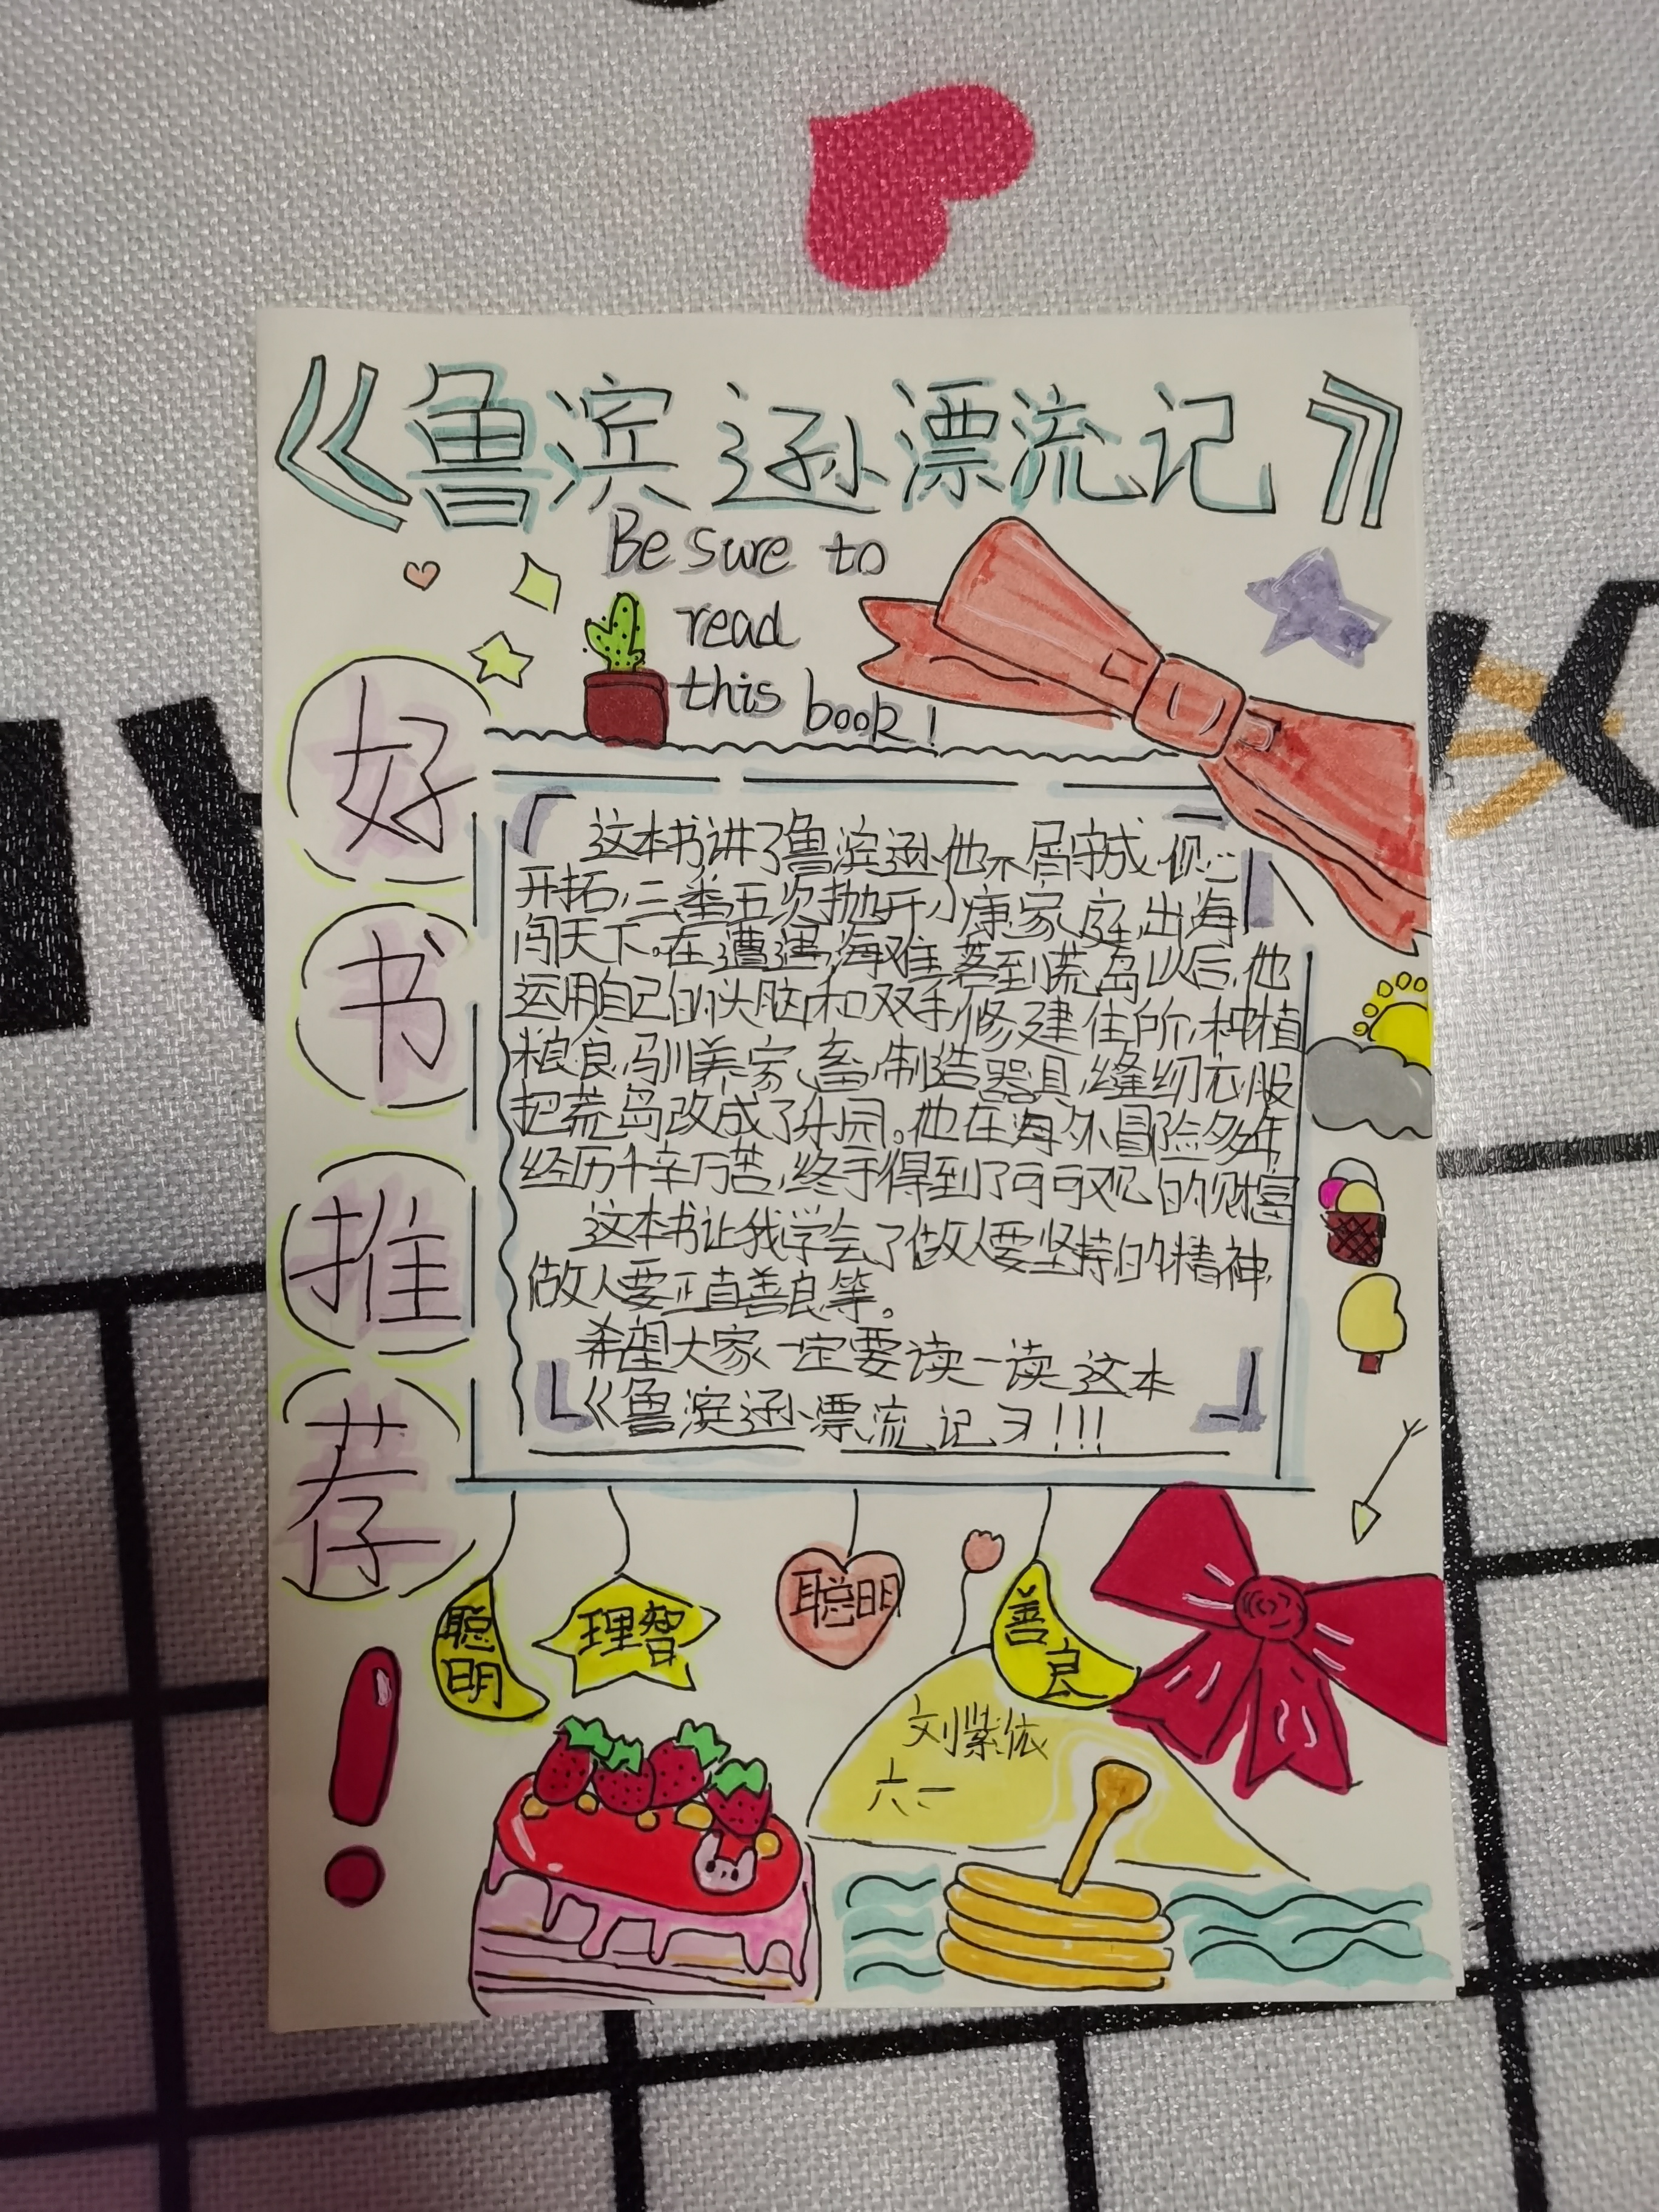 《鲁滨逊漂流记》
Be sure to
read
this book!
好
书
推
荐
这本书讲了鲁滨逊他不屑守成,倾心
开拓,三番五次抛开小康家庭,出海
闯天下。在遭遇海难,落到荒岛以后,他
运用自己的头脑和双手,修建住所,种植
粮食,驯养家畜,制造器具,缝纫衣服
把荒岛改成了乐园。他在海外冒险多年,
经历千辛万苦,终于得到了可可观的财富
这本书让我学会了做人要坚持的精神,
做人要正直善良等。
希望大家一定要读一读这本
《鲁滨逊漂流记》!!!
聪
明
理智
聪明
善
良
刘紫依
六一